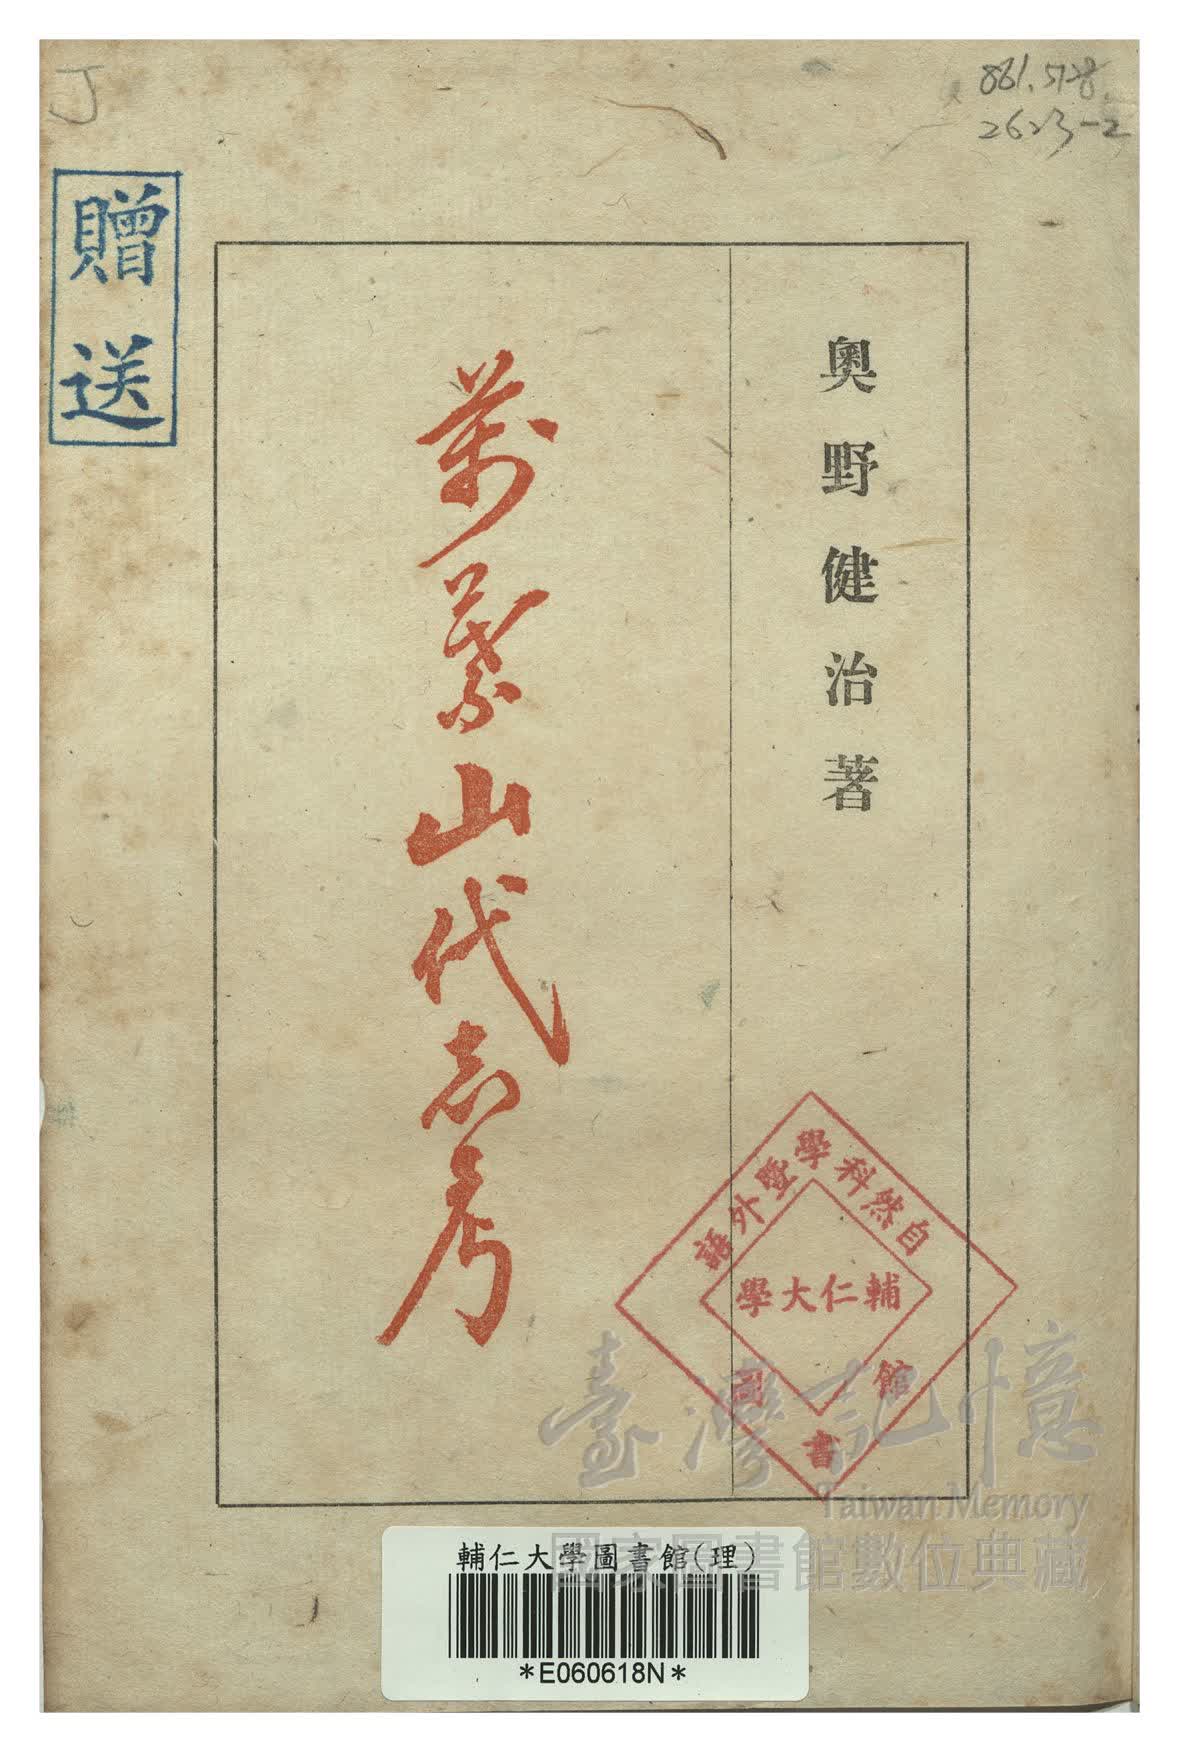 J
861.5728
2623-2
贈送
奧野健治著
萬葉山代志考
自然科學暨外語
輔仁大學
圖書館
臺灣記憶
Taiwan Memory
國家圖書館數位典藏
輔仁大學圖書館(理)
*E060618N*